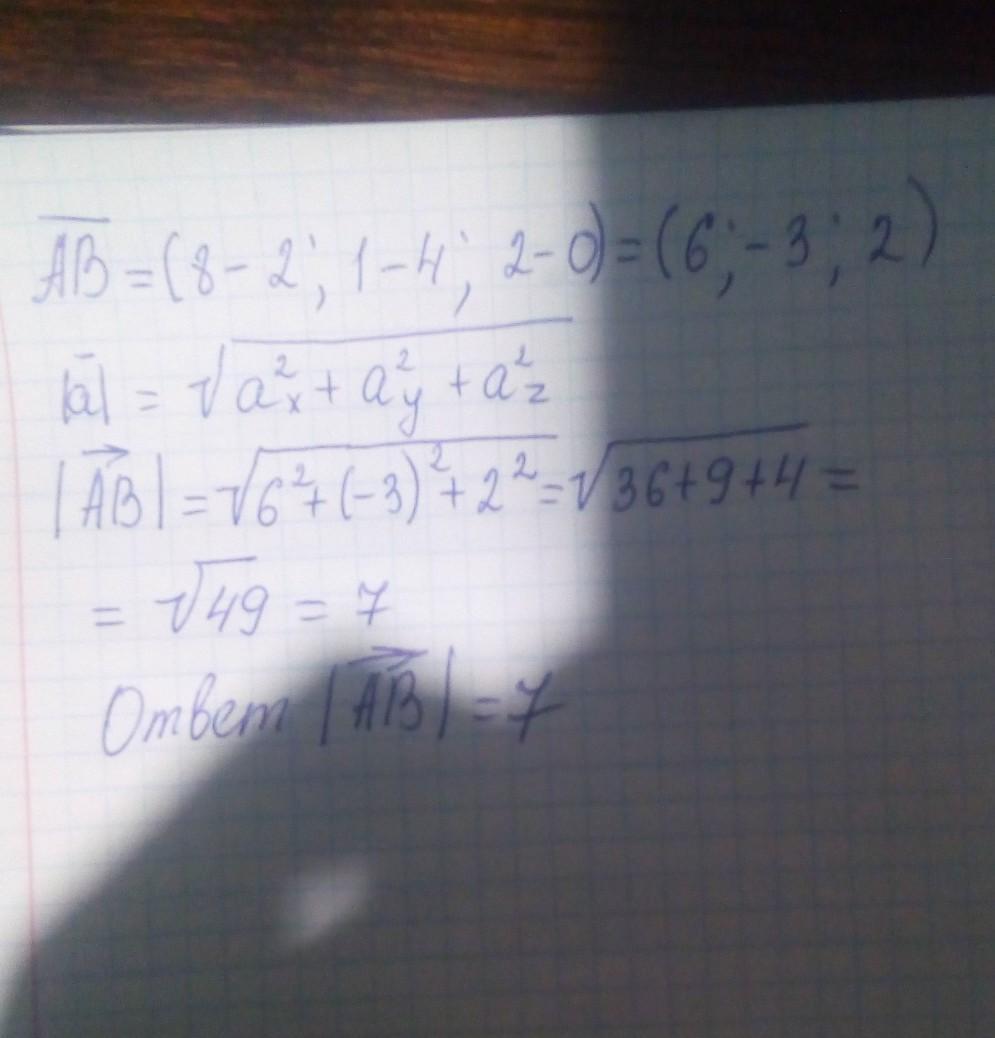 AB = (8 - 2; 1 - 4; 2 - 0) = (6; -3; 2)
|a| = √(aₓ² + a_y² + a_z²)
|AB| = √(6² + (-3)² + 2²) = √(36 + 9 + 4) =
= √49 = 7
Ответ |AB| = 7